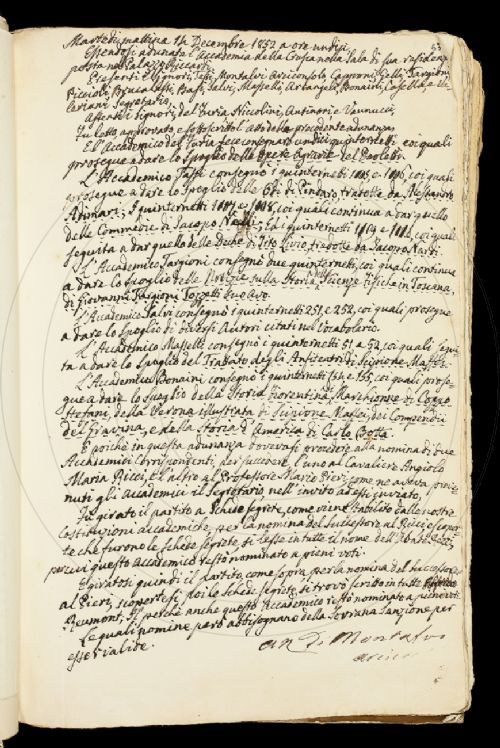 53
Martedì mattina 14 Decembre 1852 a ore undici
Essendosi adunata l'Accademia della Crusca nella Sala di sua residenza
posta nel Palazzo Riccardi
Presenti i Signori, Tassi, Montalvi, Arciconsolo, Capponi, Gelli, Targioni,
Puccioli, Bruscalassi, Basi, Salvi, Masselli, Arcangeli, Bonaini, Casella, e Va-
leriani Segretario.
Assenti i Signori, del Furia, Niccolini, Antinori e Vannucci,
Fu letto, approvato e sottoscritto l'atto della precedente adunanza
E l'Accademico del Furia fece consegnare undici quinternetti coi quali
prosegue a dare lo spoglio delle Opere Agrarie del Paoletti.
L'Accademico Tassi consegnò i quinternetti 1085 e 1086, coi quali
prosegue a dare lo Spoglio delle Odi di Pindaro tradotte da Alessandro
Adimari; I quinternetti 1087 e 1088, coi quali continua a dar quello
delle Commedie di Jacopo Nelli; Ed i quinternetti 1089 e coi quali
seguita a dar quello delle Deche di Tito Livio, tradotte da Jacopo Nardi.
L'Accademico Targioni consegnò due quinternetti, coi quali continua
a dare lo spoglio delle Notizie sulla Storia delle Scienze fisiche in Toscana,
di Giovanni Targioni Tozzetti suo Avo.
L'Accademico Salvi consegnò i quinternetti 251, e 252, coi quali prosegue
a dare lo Spoglio di diversi Autori citati nel Vocabolario.
L'Accademico Masselli consegnò i quinternetti 51 e 52, coi quali segui-
ta a dare lo Spoglio del Trattato degli Anfiteatri di Scipione Maffei.
L'Accademico Bonaini consegnò i quinternetti 154 e 155, coi quali prose-
gue a dare lo Spoglio della Storia Fiorentina di Marchionne di Coppo
Stefani, della Verona illustrata di Scipione Maffei, dei Compendii
del Gravina, e della Storia d'America di Carlo Botta.
E poichè in questa adunanza dovevasi procedere alla nomina di due
Accademici Corrispondenti, per succedere, l'uno al Cavaliere Angiolo
Maria Ricci, e l'altro al Professore Mario Pieri, come ne aveva preve-
nuti gli Accademici il Segretario nell'invito ad essi inviato,
Fu girato il partito a Schede segrete, come viene stabilito dalle nostre
Costituzioni accademiche, per la nomina del Successore al Ricci, e scoper-
te che furono le schede segrete si lesse in tutte il nome dell'
perciò questo Accademico restò nominato a pieni voti.
E giratosi quindi il partito, come sopra, per la nomina del Successore
al Pieri, scopertesi poi le Schede segrete si trovò scritto in tutte
Reumont, Il perchè anche questo Accademico restò nominato a pieni voti
Le quali nomine però abbisognano della Sovrana Sanzione per
esser valide.
Montalvi